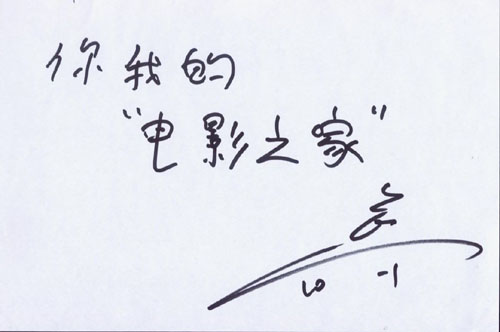 你我的
“电影之家”
10 -1